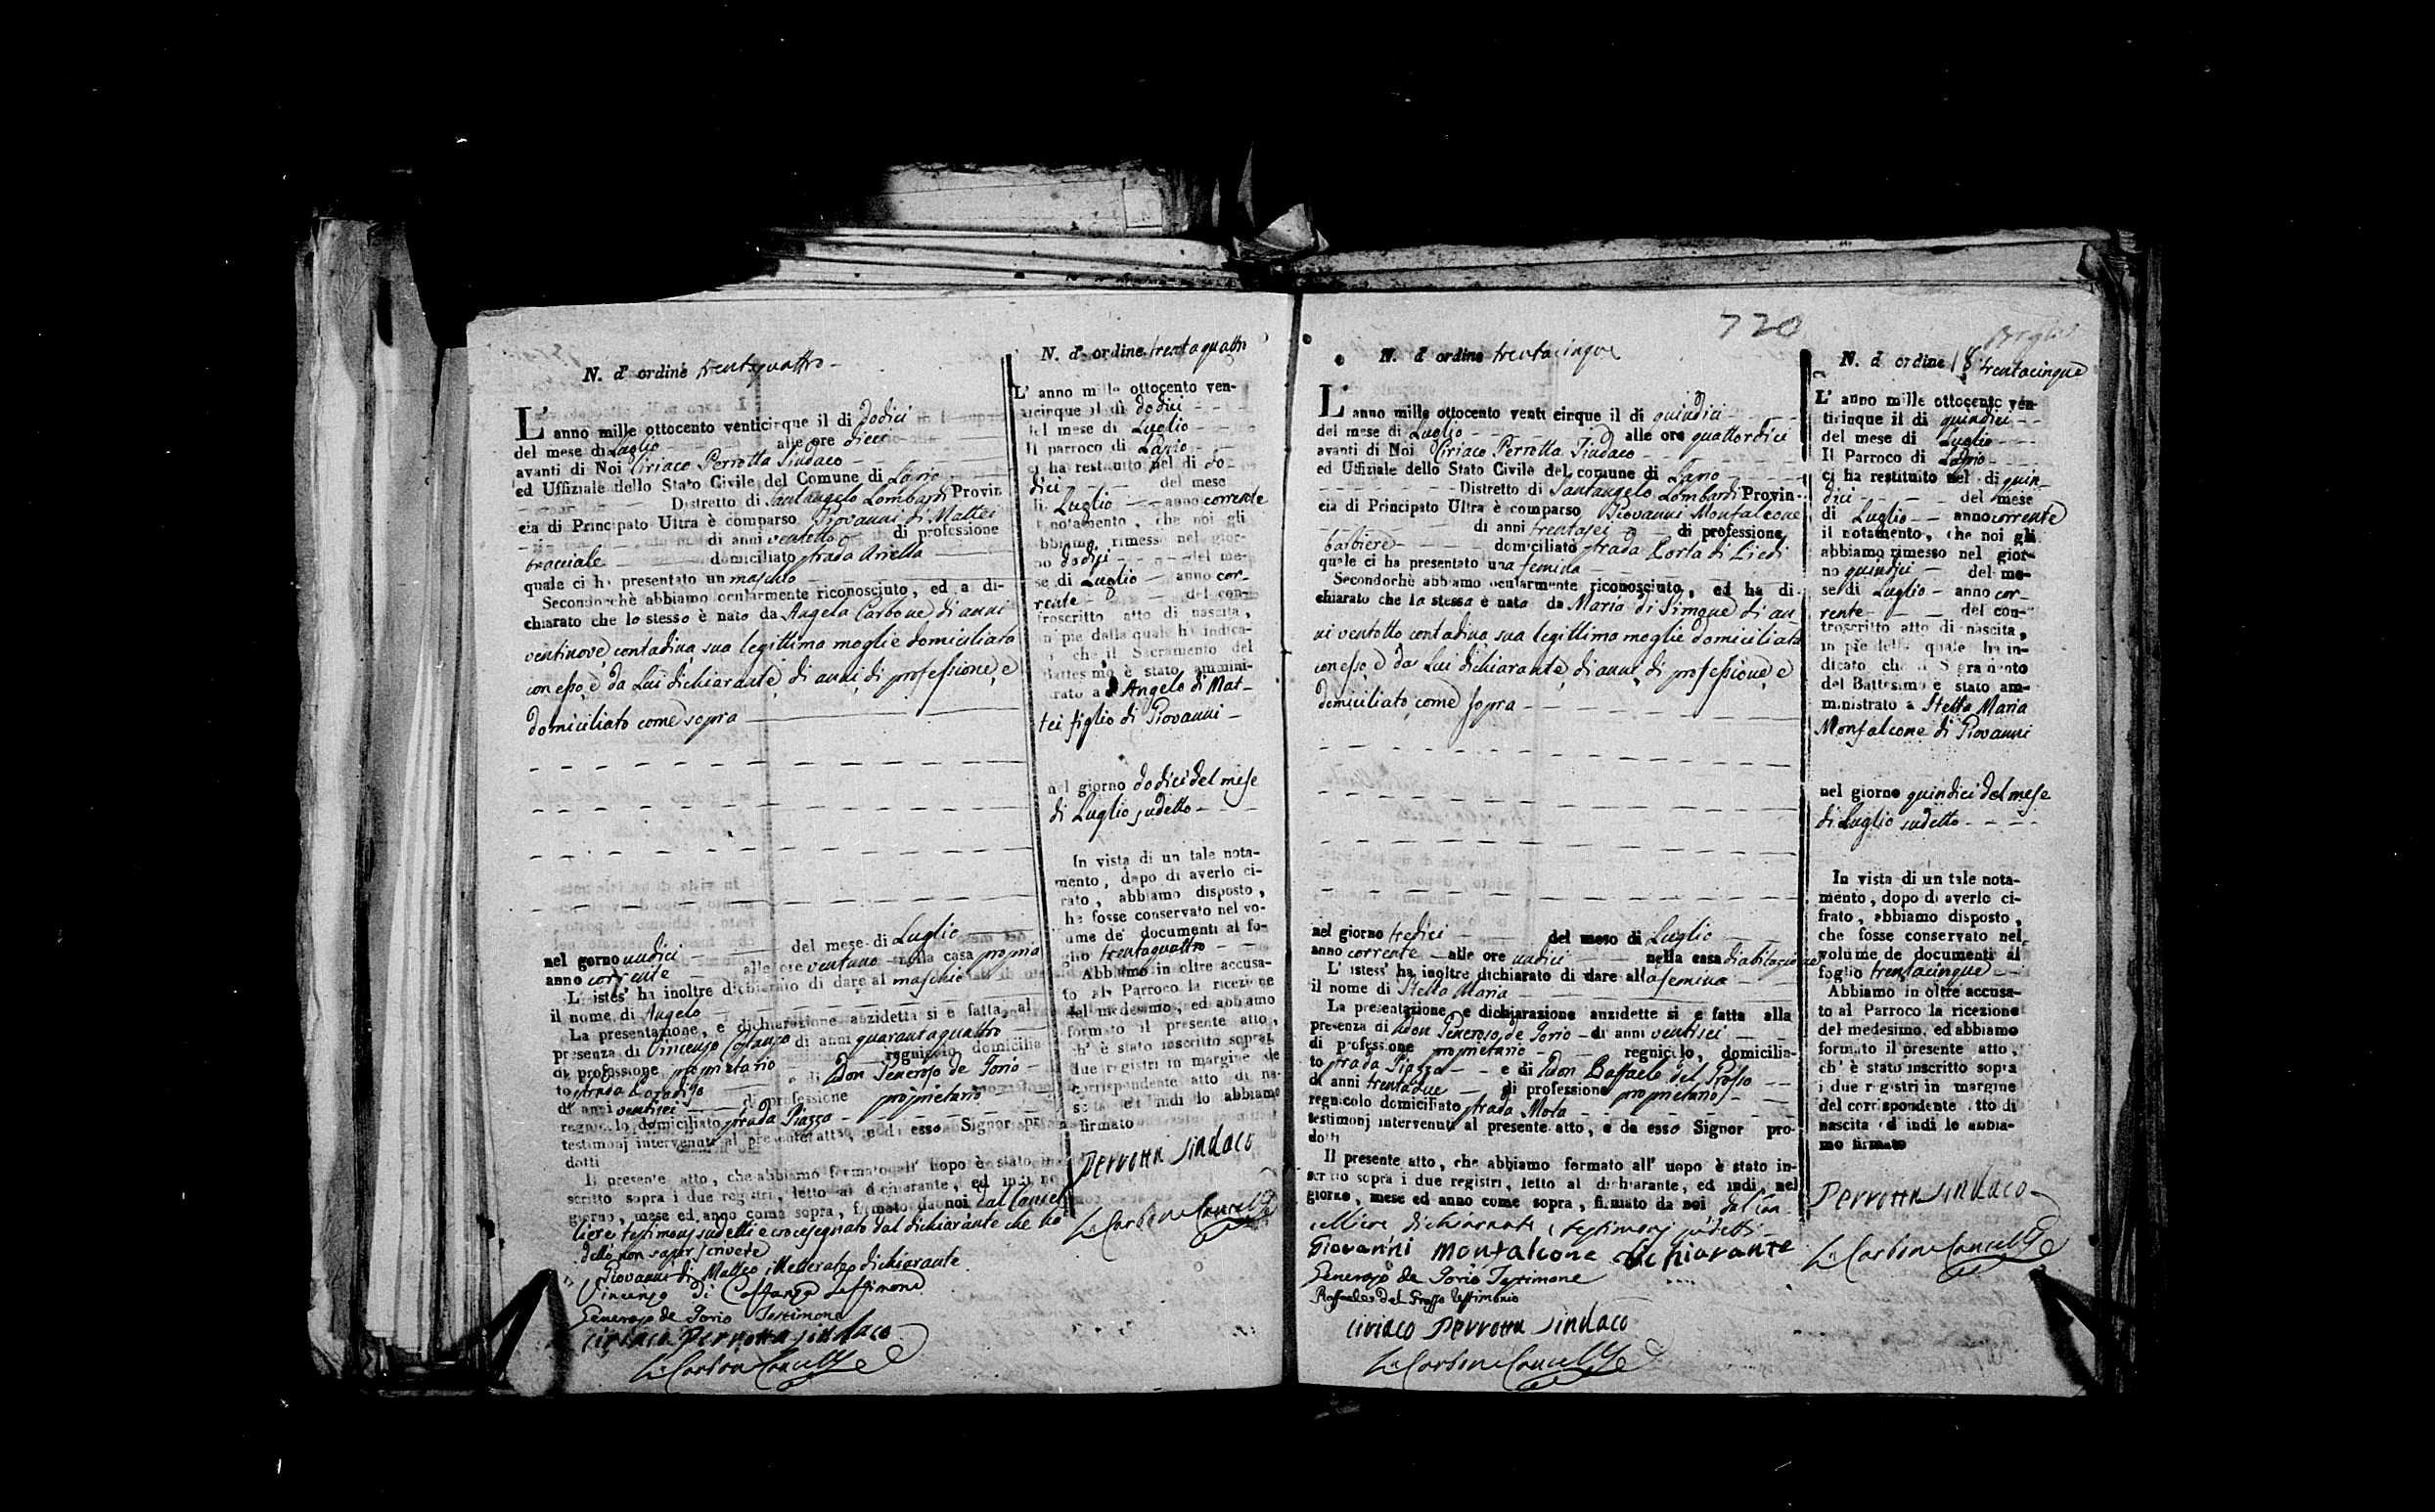 N. d' ordine trentaquattro
L' anno mille ottocento venticinque il di dodici
del mese di Luglio alle ore dieci
avanti di Noi Ciriaco Perrotta Sindaco
ed Uffiziale dello Stato Civile del Comune di Lapio
Distretto di Santangelo Lombardi Provin
cia di Principato Ultra è comparso Giovanni di Mattei
di anni ventotto di professione
bracciale domiciliato strada Ariella
quale ci ha presentato un maschio
Secondochè abbiamo ocularmente riconosciuto, ed a di-
chiarato che lo stesso è nato da Angela Carbone di anni
ventinove contadina sua legittima moglie domiciliata
con esso, e da Lui dichiarante, di anni, di professione, e
domiciliato come sopra
nel gorno undici del mese di Luglio
anno corrente alle ore ventuno nella casa propria
L' istes' ha inoltre dichiarato di dare al maschio
il nome di Angelo
La presentazione, e dichiarazione anzidetta si e fatta, al
presenza di Vincenzo Costanzo di anni quarantaquattro
di professione proprietario regnicolo domicilia
to strada e di Don Generoso de Iorio
di anni ventisei di professione proprietario
regnicolo domiciliato strada Piazza
testimonj intervenuti al presente atto, e da esso Signor pro
dotti
Il presente atto, che abbiamo formato all' uopo è stato in
scritto sopra i due registri, letto al dichiarante, ed indi nel
giorno, mese ed anno come sopra, firmato da noi dal Cancel
liere testimonj sudetti e crocesegnato dal dichiarante che ha
detto non saper scrivere
Giovanni di Matteo illetterato dichiarante
Vincenzo di Costanzo Testimone
Generoso de Iorio Testimone
Ciriaco Perrotta Sindaco
Carbone Cancell
N. d' ordine trentaquattro
L' anno mille ottocento ven-
ticinque il di dodici
del mese di Luglio
Il parroco di Lapio
ci ha restituito nel di do-
dici del mese
di Luglio anno corrente
notamento, che noi gli
abbiamo rimesso nel gior-
no dodici del me-
se di Luglio anno cor-
rente del con-
troscritto atto di nascita,
in piè della quale ha indica-
che il Sacramento del
Battesimo è stato ammini-
trato a Angelo di Mat-
tei figlio di Giovanni
nel giorno dodici del mese
di Luglio sudetto
In vista di un tale nota-
mento, dopo di averlo ci-
rato, abbiamo disposto,
he fosse conservato nel vo-
ume de' documenti al fo-
glio trentaquattro
Abbiamo in oltre accusa-
to al Parroco la ricezione
del medesimo, ed abbiamo
formato il presente atto,
ch' è stato inscritto sopra
due registri in margine de
corrispondente atto di na-
scita ed indi lo abbiamo
firmato
Perrotta Sindaco
Carbone Cancell
720
N. d' ordine trentacinque
L' anno mille ottocento venti cinque il di quindici
del mese di Luglio alle ore quattordici
avanti di Noi Ciriaco Perrotta Sindaco
ed Uffiziale dello Stato Civile del comune di Lapio
Distretto di Santangelo Lombardi Provin-
cia di Principato Ultra è comparso Giovanni Monfalcone
di anni trentasei di professione
barbiere domiciliato strada Porta di Piedi
quale ci ha presentato una femina
Secondochè abbiamo ocularmente riconosciuto, ed ha di-
chiarato che la stessa è nata da Maria di Simone di an-
ni ventotto contadina sua legittima moglie domiciliata
con esso, e da Lui dichiarante, di anni, di professione, e
domiciliato come sopra
nel giorno tredici del mese di Luglio
anno corrente alle ore undici nella casa di abitazione
L' istess' ha inoltre dichiarato di dare alla femina
il nome di Stella Maria
La presentazione, e dichiarazione anzidette si e fatta alla
presenza di Don Generoso de Iorio di anni ventisei
di professione proprietario regnicolo, domicilia-
to strada Piazza e di Don Raffaele del Grosso
di anni trentadue di professione proprietario
regnicolo domiciliato strada Mola
testimonj intervenuti al presente atto, e da esso Signor pro-
dotti
Il presente atto, che abbiamo formato all' uopo è stato in-
scritto sopra i due registri, letto al dichiarante, ed indi nel
giorno, mese ed anno come sopra, firmato da noi dal Can
celliere dichiarante e testimonj sudetti
Giovanni Monfalcone dichiarante
Generoso de Iorio Testimone
Raffaele del Grosso Testimonio
Ciriaco Perrotta Sindaco
Carbone Cancell
N. d' ordine 18 trentacinque
L' anno mille ottocento ven-
ticinque il di quindici
del mese di Luglio
Il Parroco di Lapio
ci ha restituito nel di quin-
dici del mese
di Luglio anno corrente
il notamento, che noi gli
abbiamo rimesso nel gior-
no quindici del me-
se di Luglio anno cor-
rente del con-
troscritto atto di nascita,
in piè della quale ha in-
dicato che il Sagramento
del Battesimo è stato am-
ministrato a Stella Maria
Monfalcone di Giovanni
nel giorno quindici del mese
di Luglio sudetto
In vista di un tale nota-
mento, dopo di averlo ci-
frato, abbiamo disposto,
che fosse conservato nel
volume de documenti al
foglio trentacinque
Abbiamo in oltre accusa-
to al Parroco la ricezione
del medesimo, ed abbiamo
formato il presente atto,
ch' è stato inscritto sopra
i due registri in margine
del corrispondente atto di
nascita ed indi lo abbia-
mo firmato
Perrotta Sindaco
Carbone Cancell